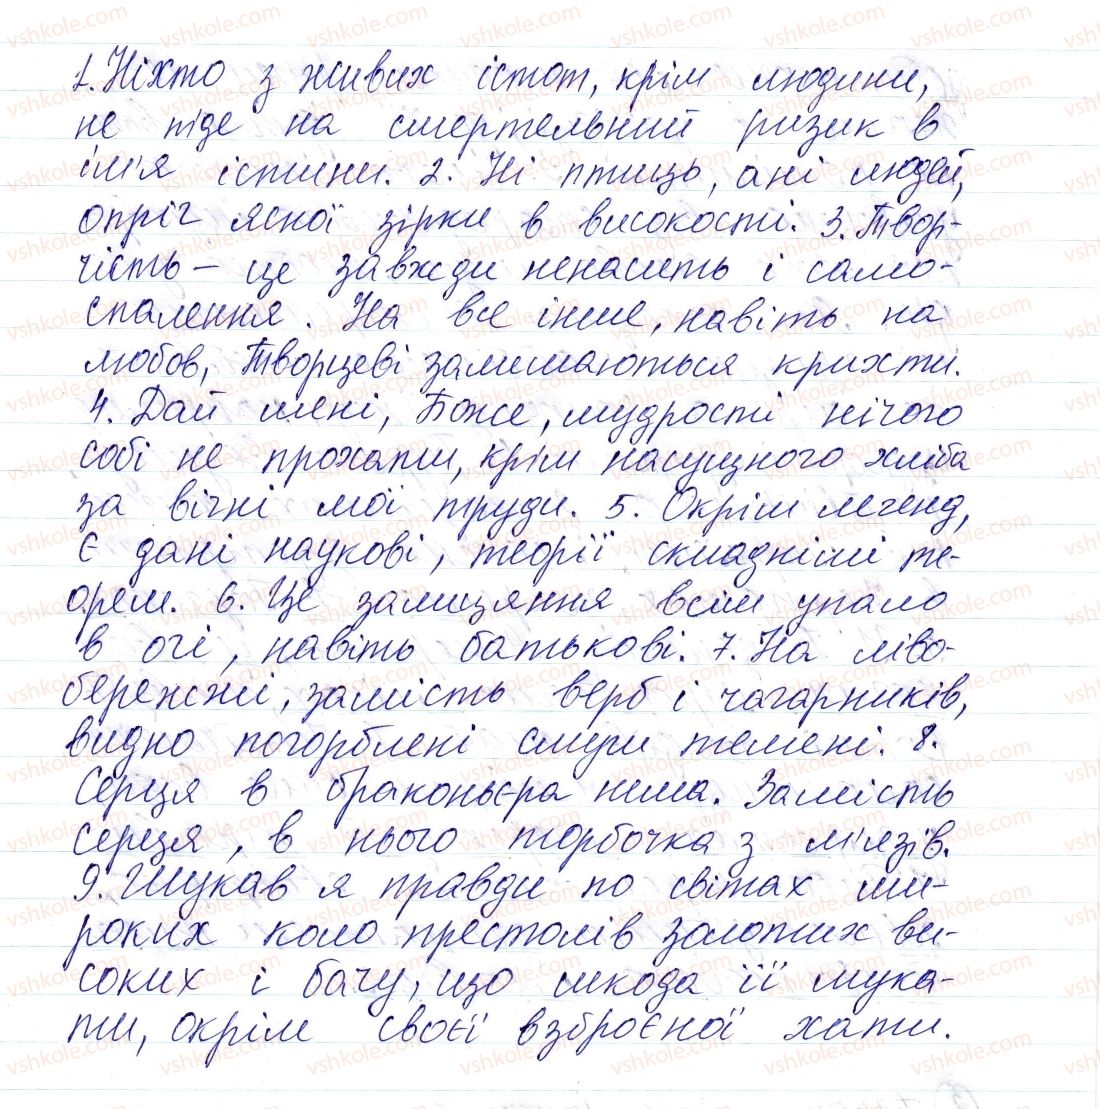 1. Ніхто з живих істот, крім людини,
не піде на смертельний ризик в
ім'я істини. 2. Ні птиць, ані людей,
опріг ясної зірки в високості. 3. Твор-
чість – це завжди ненасить і само-
спалення. На все інше, навіть на
любов, Творцеві залишаються крихти.
4. Дай мені, Боже, мудрості нічого
собі не прохати, крім насущного хліба
за вічні мої труди. 5. Окрім легенд,
є дані наукові, теорії складніші те-
орем. 6. Це залицяння всім упало
в очі, навіть батькові. 7. На ліво-
бережжі, замість верб і чагарників,
видно погорблені смуги темені. 8.
Серця в браконьєра нема. Замість
серця, в нього торбочка з м'язів.
9. Шукав я правди по світах ши-
роких коло престолів золотих ви-
соких і бачу, що шкода її шука-
ти, окрім своєї взброєної хати.